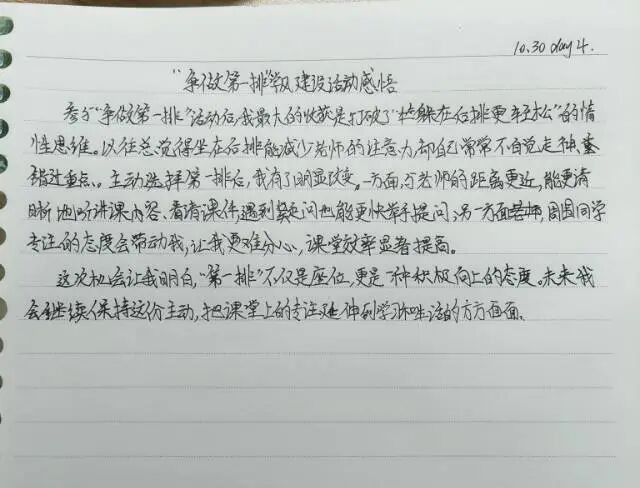 10.30 day 4.
"争做第一排"学风建设活动感悟
参与"争做第一排"活动后,我最大的收获是打破了"躲在后排更轻松"的惰
性思维。以往总觉得坐在后排能减少老师的注意力,却自己常常不自觉走神、
错过重点。主动选择第一排后,我有了明显改变。一方面,与老师的距离更近,能更清
晰地听讲课内容、看清课件,遇到疑问也能更快举手提问;另一方面,周围同学
专注的态度会带动我,让我更难分心,课堂效率显著提高。
这次机会让我明白,"第一排"不仅是座位,更是一种积极向上的态度。未来我
会继续保持这份主动,把课堂上的专注延伸到学习和生活的方方面面。